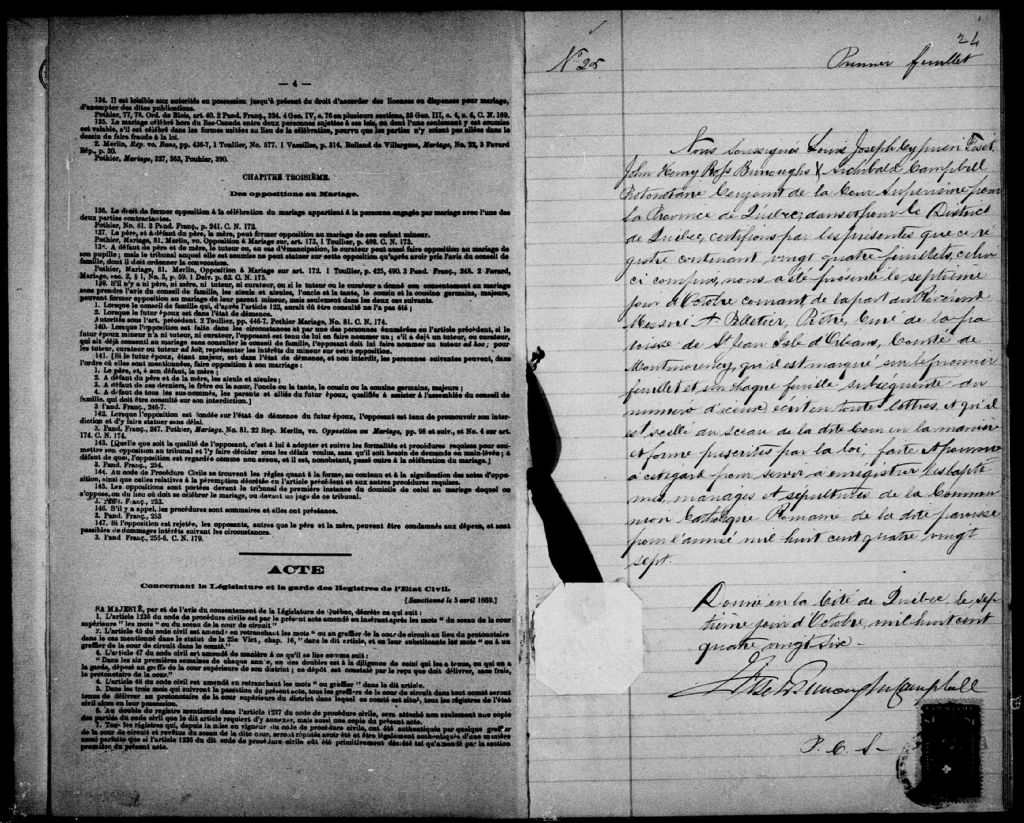 — 4 —
134. Il est loisible aux autorités en possession jusqu'à présent du droit d'accorder des licences ou dispenses pour mariage,
d'exempter des dites publications.
Pothier, 77, 78. Ord. de Blois, art. 40. 2 Pand. Franç., 324. 4 Geo. IV, c. 76 en plusieurs sections, 35 Geo. III, c. 4, s. 4, C. N. 169.
135. Le mariage célébré hors du Bas-Canada entre deux personnes sujettes à ses lois, ou dont l'une seulement y est soumise
est valable, s'il est célébré dans les formes usitées au lieu de la célébration, pourvu que les parties n'y soient pas allées dans le
dessein de faire fraude à la loi.
2. Merlin, Rép. vo. Bans, pp. 436-7, 1 Toullier, No. 577. 1 Vazeilles, p. 314. Rolland de Villargues, Mariage, No. 22, 3 Favard
Rép., p. 30.
Pothier, Mariage, 327, 363, Pouhier, 390.
CHAPITRE TROISIÈME.
Des oppositions au Mariage.
136. Le droit de former opposition à la célébration du mariage appartient à la personne engagée par mariage avec l'une des
deux parties contractantes.
Pothier, No. 81. 3 Pand. Franç., p. 241. C. N. 172.
137. Le père, et à défaut du père, la mère, peut former opposition au mariage de son enfant mineur.
Pothier, Mariage, 81. Merlin, vo. Opposition à Mariage sur art. 173, 1 Toullier, p. 490. C. N. 173.
13 . A défaut de père et de mère, le tuteur ou, au cas d'émancipation, le curateur peut aussi faire opposition au mariage de
son pupille; mais le tribunal auquel elle est soumise ne peut statuer sur cette opposition qu'après avoir pris l'avis du conseil de
famille, dont il doit ordonner la convocation.
Pothier, Mariage, 81. Merlin, Opposition à Mariage sur art. 172. 1 Toullier, p. 425, 490. 3 Pand. Franç., 248. 2 Favard,
Mariage, sec. 2, § 1, No. 3, p. 59. 1 Delv. p. 62. C. N. 175.
139. S'il n'y a ni père, ni mère, ni tuteur, ni curateur, ou si le tuteur ou le curateur a donné son consentement au mariage
sans prendre l'avis du conseil de famille, les aïeuls et aïeules, l'oncle et la tante, le cousin et la cousine germains, majeurs,
peuvent former opposition au mariage de leur parent mineur, mais seulement dans les deux cas suivants.
1. Lorsque le conseil de famille qui, d'après l'article 122, aurait dû être consulté ne l'a pas été;
2. Lorsque le futur époux est dans l'état de démence.
Autorités sous l'art. précédent. 2 Toullier, pp. 446-7. Pothier Mariage, No. 81. C. N. 174.
140. Lorsque l'opposition est faite dans les circonstances et par une des personnes énumérées en l'article précédent, si le
futur époux mineur n'a ni tuteur, ni curateur, l'opposant est tenu de lui en faire nommer un; s'il a déjà un tuteur, ou curateur,
qui ait déjà consenti au mariage sans consulter le conseil de famille, l'opposant doit lui faire nommer un tuteur ad hoc; pour
les tuteur, curateur ou tuteur ad hoc, représenter les intérêts du mineur sur cette opposition.
141. [Si le futur époux, étant majeur, est dans l'état de démence, et non interdit, les personnes suivantes peuvent, dans
l'ordre où elles sont mentionnées, faire opposition à son mariage:
1. Le père, et à son défaut, la mère;
2. A défaut du père et de la mère, les aïeuls et aïeules;
3. A défaut de ces derniers, le frère ou la sœur, l'oncle ou la tante, le cousin ou la cousine germains, majeurs;
4. A défaut de tous les sus-nommés, les parents et alliés du futur époux, qualifiés à assister à l'assemblée du conseil de
famille, qui doit être consulté sur son interdiction.]
3 Pand. Franç., 246-7.
142. Lorsque l'opposition est fondée sur l'état de démence du futur époux, l'opposant est tenu de promouvoir son inter-
diction et d'y faire statuer sans délai.
3. Pand. Franç., 247. Pothier, Mariage, No. 81. 22 Rep. Merlin, vo. Opposition au Mariage, pp. 98 et suiv., et No. 4 sur art.
174. C. N. 174.
143. [Quelle que soit la qualité de l'opposant, c'est à lui à adopter et suivre les formalités et procédures requises pour sou-
mettre son opposition au tribunal et l'y faire décider sous les délais voulus, sans qu'il soit besoin de demande en main-levée; à
défaut de quoi, l'opposition est regardée comme non avenue, et il est, nonobstant, passé outre à la célébration du mariage.]
3. Pand. Franç., 254.
144. Au code de Procédure Civile se trouvent les règles quant à la forme, au contenu et à la signification des actes d'oppo-
sition, ainsi que celles relatives à la péremption décrétée en l'article précédent et aux autres procédures requises.
145. Les oppositions sont portées devant le tribunal de première instance du domicile de celui au mariage duquel on
s'oppose, ou du lieu où doit se célébrer le mariage, ou devant un juge de ce tribunal.
3. Pand. Franç., 253.
146. S'il y a appel, les procédures sont sommaires et elles ont préséance.
3. Pand. Franç., 253
147. Si l'opposition est rejetée, les opposants, autres que le père et la mère, peuvent être condamnés aux dépens, et sont
passibles de dommages intérêts suivant les circonstances.
3. Pand. Franç., 255-6. C. N. 179.
ACTE
Concernant la Législature et la garde des Registres de l'Etat Civil.
[Sanctionné le 5 avril 1869.]
SA MAJESTÉ, par et de l'avis du consentement de la Législature de Québec, décrète ce qui suit:
1. L'article 1236 du code de procédure civile est par le présent acte amendé en insérant après les mots "du sceau de la cour
supérieure" les mots "ou du sceau de la cour de circuit."
2. L'article 45 du code civil est amendé en retranchant les mots "ou au greffier de la cour de circuit au lieu du protonotaire
dans le cas mentionné dans le statut de la 25e Vict., chap. 16," dans le dit article, et en leur substituant les mots "ou à un
greffier de la cour de circuit dans le comté."
3. L'article 47 du code civil est amendé de manière à ce qu'il se lise comme suit:
"Dans les six premières semaines de chaque année, un des doubles est à la diligence de celui qui les a tenus, ou qui en a
la garde, déposé au greffe de la cour supérieure de son district; ce dépôt est constaté par le reçu que doit délivrer, sans frais,
le protonotaire de la cour."
4. L'article 48 du code civil est amendé en retranchant les mots "ou greffier" dans le dit article.
5. Dans les trois mois qui suivront la passation du présent acte, tous les greffiers de la cour de circuit dans tout comté seront
tenus de délivrer au protonotaire de la cour supérieure du district dans lequel ce comté est situé, tous les registres de l'état
civil alors en leur possession.
6. Au double du registre mentionné dans l'article 1237 du code de procédure civile, sera annexé non seulement une copie
des parties du code civil que le dit article requiert d'y annexer, mais aussi une copie du présent acte.
7. Tous les registres qui, depuis la mise en vigueur du code de procédure civile, ont été authentiqués par quelque greffier
de la cour de circuit et revêtus du sceau de la dite cour, seront réputés avoir été et être légalement authentiqués d'une manière
aussi parfaite que si l'article 1236 du dit code de procédure civile eût été primitivement décrété tel qu'amendé par la section
première du présent acte.
24
No 25
Premier feuillet
Nous soussignés Louis Joseph Cyprien Fiset
John Henry Ross Burroughs & Archibald Campbell
Protonotaire Conjoint de la Cour Supérieure pour
la Province de Québec, dans et pour le District
de Québec, certifions par les présentes que ce ré
gistre contenant vingt quatre feuillets, celui
ci compris, nous a été présenté le septième
jour d'Octobre courant de la part du Révérend
Messire A Pelletier, Ptre, Curé de la pa
roisse de St Jean Isle d'Orléans, Comté de
Montmorency, qu'il est marqué sur le premier
feuillet et sur chaque feuille subséquente du
numéro d'icelui, écrit en toutes lettres, et qu'il
est scellé du sceau de la dite Cour en la manière
et forme prescrites par la loi, faite et pourvue
à cet égard pour servir à enregistrer les baptê
mes, mariages et sépultures de la Commu
nion Catholique Romaine de la dite paroisse
pour l'année mil huit cent quatre vingt
sept.
Donné en la Cité de Québec, le sep
tième jour d'Octobre, mil huit cent
quatre vingt six -
Fiset Burroughs Campbell
P. C. S.